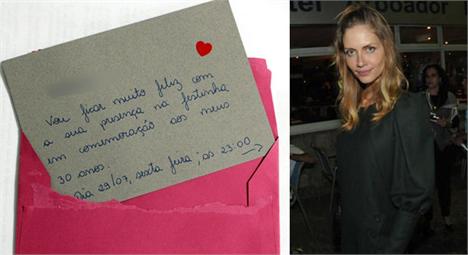 Vou ficar muito feliz com
a sua presença na festinha
em comemoração aos meus
30 anos.
Dia 29/07, sexta feira, as 23:00
oador